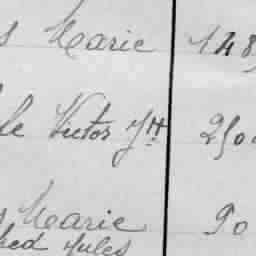 s Marie 148
le Victor Jh 250
s Marie 90
hed Jules